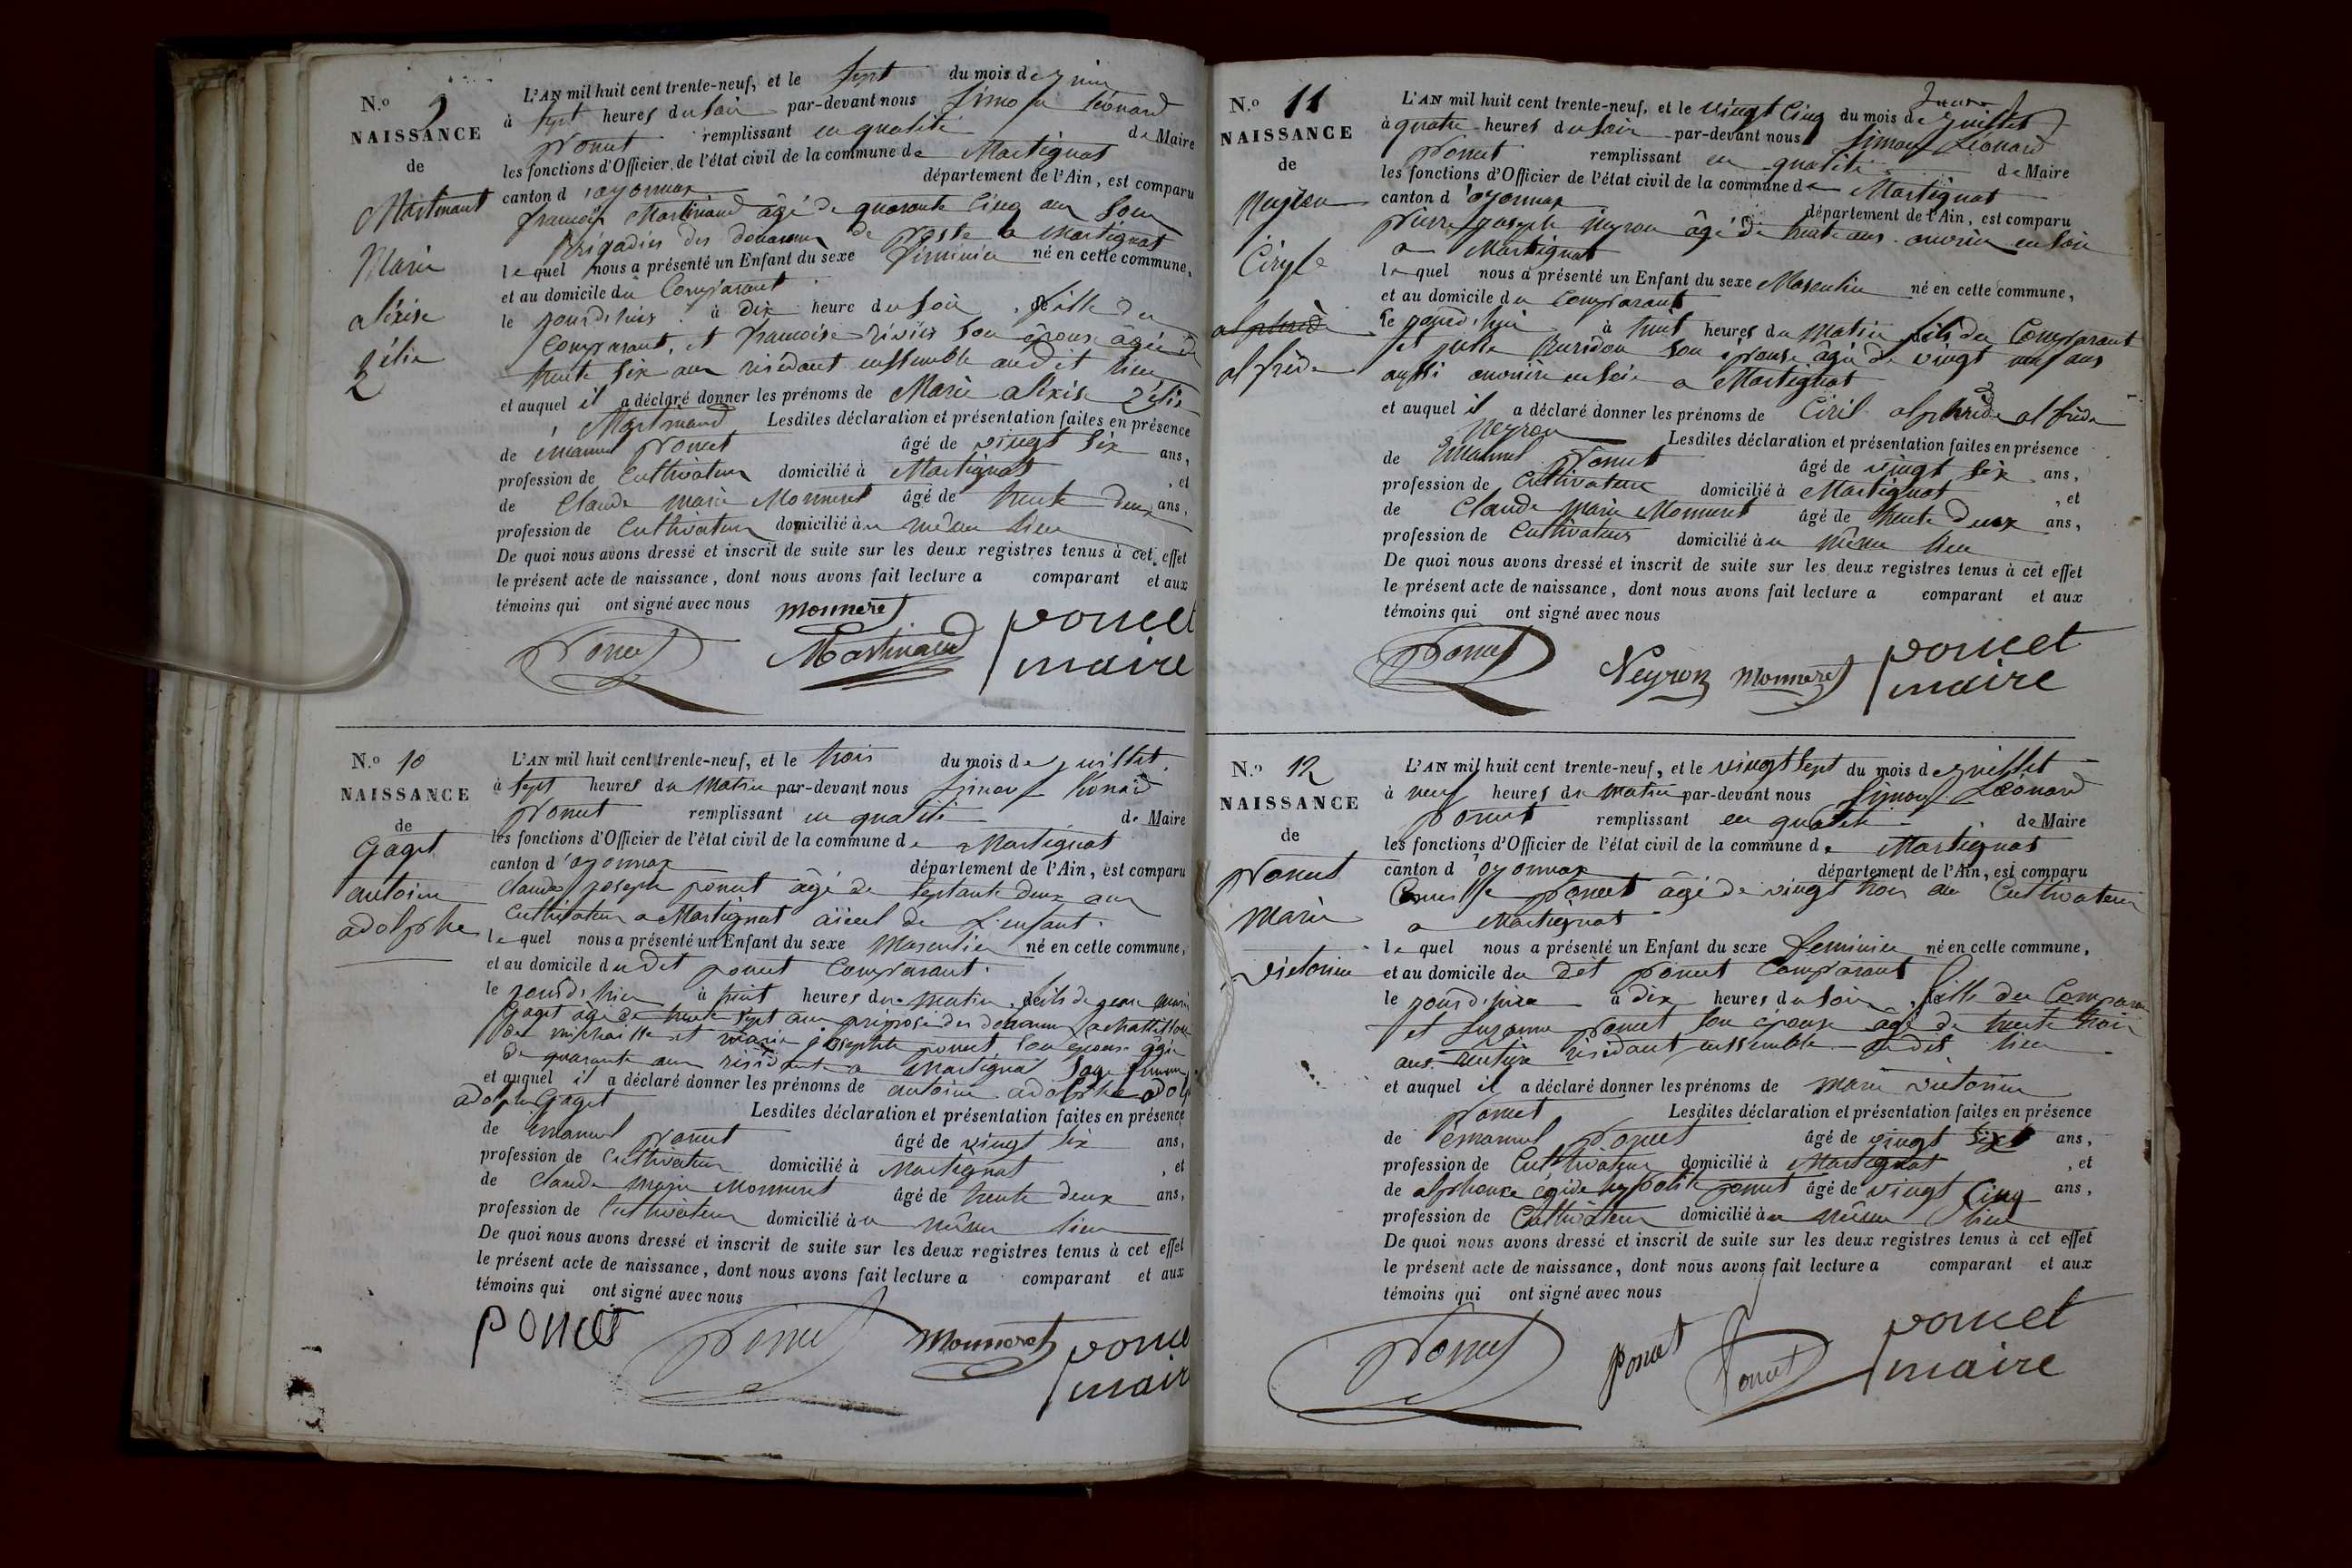 N.o 9
NAISSANCE
de
Martinant
Marie
alexise
Zélie
L'AN mil huit cent trente-neuf, et le sept du mois de juin
à sept heures du soir par-devant nous Simon Léonard
poncet remplissant en qualité de Maire
les fonctions d'Officier de l'état civil de la commune de Martignat
canton d'oyonnax département de l'Ain, est comparu
francois Martinand âgé de quarante cinq ans sous
Brigadier des douannes de poste a Martignat
lequel nous a présenté un Enfant du sexe féminin né en cette commune,
et au domicile du Comparant
le jourd'huis à dix heure du soir fille du
Comparant, et francoise son épouse âgée de
trente six ans résidant enssemble audit lieu
et auquel il a déclaré donner les prénoms de Marie alexise Zélie
Martinand Lesdites déclaration et présentation faites en présence
de émanuel poncet âgé de vingt six ans,
profession de Cultivateur domicilié à Martignat, et
de Claude marie Monneret âgé de trente deux ans,
profession de Cultivateur domicilié au même lieu
De quoi nous avons dressé et inscrit de suite sur les deux registres tenus à cet effet
le présent acte de naissance, dont nous avons fait lecture a comparant et aux
témoins qui ont signé avec nous monneret
Poncet Martinand poncet
maire
N.o 10
NAISSANCE
de
Gaget
antoine
adolphe
L'AN mil huit cent trente-neuf, et le trois du mois de juillet
à sept heures du matin par-devant nous Simon Léonard
poncet remplissant en qualité de Maire
les fonctions d'Officier de l'état civil de la commune de Martignat
canton d'oyonnax département de l'Ain, est comparu
Claude joseph poncet âgé de septante deux ans
Cultivateur a Martignat aieul de l'enfant
lequel nous a présenté un Enfant du sexe masculin né en cette commune,
et au domicile du dit poncet Comparant
le jourd'hui à huit heures du matin, fils de jean marie
Gaget âgé de trente sept ans préposé des douannes a chattillon
de michaille et marie josephte poncet son épouse âgée
de quarante ans résidente a Martignat sage femme
et auquel il a déclaré donner les prénoms de antoine adolphe
adolphe Gaget Lesdites déclaration et présentation faites en présence
de émanuel poncet âgé de vingt six ans,
profession de Cultivateur domicilié à Martignat, et
de Claude marie Monneret âgé de trente deux ans,
profession de Cultivateur domicilié au même lieu
De quoi nous avons dressé et inscrit de suite sur les deux registres tenus à cet effet
le présent acte de naissance, dont nous avons fait lecture a comparant et aux
témoins qui ont signé avec nous
poncet Poncet monneret poncet
maire
N.o 11
NAISSANCE
de
Neyron
Ciryle
alfrède
L'AN mil huit cent trente-neuf, et le vingt cinq du mois de juillet
à quatre heures du soir par-devant nous Simon Léonard
poncet remplissant en qualité de Maire
les fonctions d'Officier de l'état civil de la commune de Martignat
canton d'oyonnax département de l'Ain, est comparu
pierre joseph neyron âgé de trente ans ouvrier en soie
a Martignat
lequel nous a présenté un Enfant du sexe Masculin né en cette commune,
et au domicile du comparant
le jourd'hui à huit heures du matin fils du Comparant
et julie Buridon son épouse âgée de vingt neuf ans
aussi ouvrière en soie a Martignat
et auquel il a déclaré donner les prénoms de Ciril alfrède
neyron Lesdites déclaration et présentation faites en présence
de Emanuel poncet âgé de vingt six ans,
profession de Cultivateur domicilié à Martignat, et
de Claude marie Monneret âgé de trente deux ans,
profession de Cultivateur domicilié au même lieu
De quoi nous avons dressé et inscrit de suite sur les deux registres tenus à cet effet
le présent acte de naissance, dont nous avons fait lecture a comparant et aux
témoins qui ont signé avec nous
Poncet Neyron monneret poncet
maire
N.o 12
NAISSANCE
de
Poncet
marie
victorine
L'AN mil huit cent trente-neuf, et le vingt sept du mois de juillet
à neuf heures du matin par-devant nous Simon Léonard
poncet remplissant en qualité de Maire
les fonctions d'Officier de l'état civil de la commune de Martignat
canton d'oyonnax département de l'Ain, est comparu
Camille poncet âgé de vingt trois ans Cultivateur
a Martignat
lequel nous a présenté un Enfant du sexe feminin né en cette commune,
et au domicile du dit poncet Comparant
le jourd'hui à dix heures du soir, fille du Comparant
et Suzanne poncet son épouse âgé de trente trois
ans résidant enssemble au dit lieu
et auquel il a déclaré donner les prénoms de marie victorine
poncet Lesdites déclaration et présentation faites en présence
de émanuel poncet âgé de vingt six ans,
profession de Cultivateur domicilié à Martignat, et
de alphonce égide hypolite poncet âgé de vingt cinq ans,
profession de Cultivateur domicilié au même lieu
De quoi nous avons dressé et inscrit de suite sur les deux registres tenus à cet effet
le présent acte de naissance, dont nous avons fait lecture a comparant et aux
témoins qui ont signé avec nous
Poncet Poncet Poncet poncet
maire